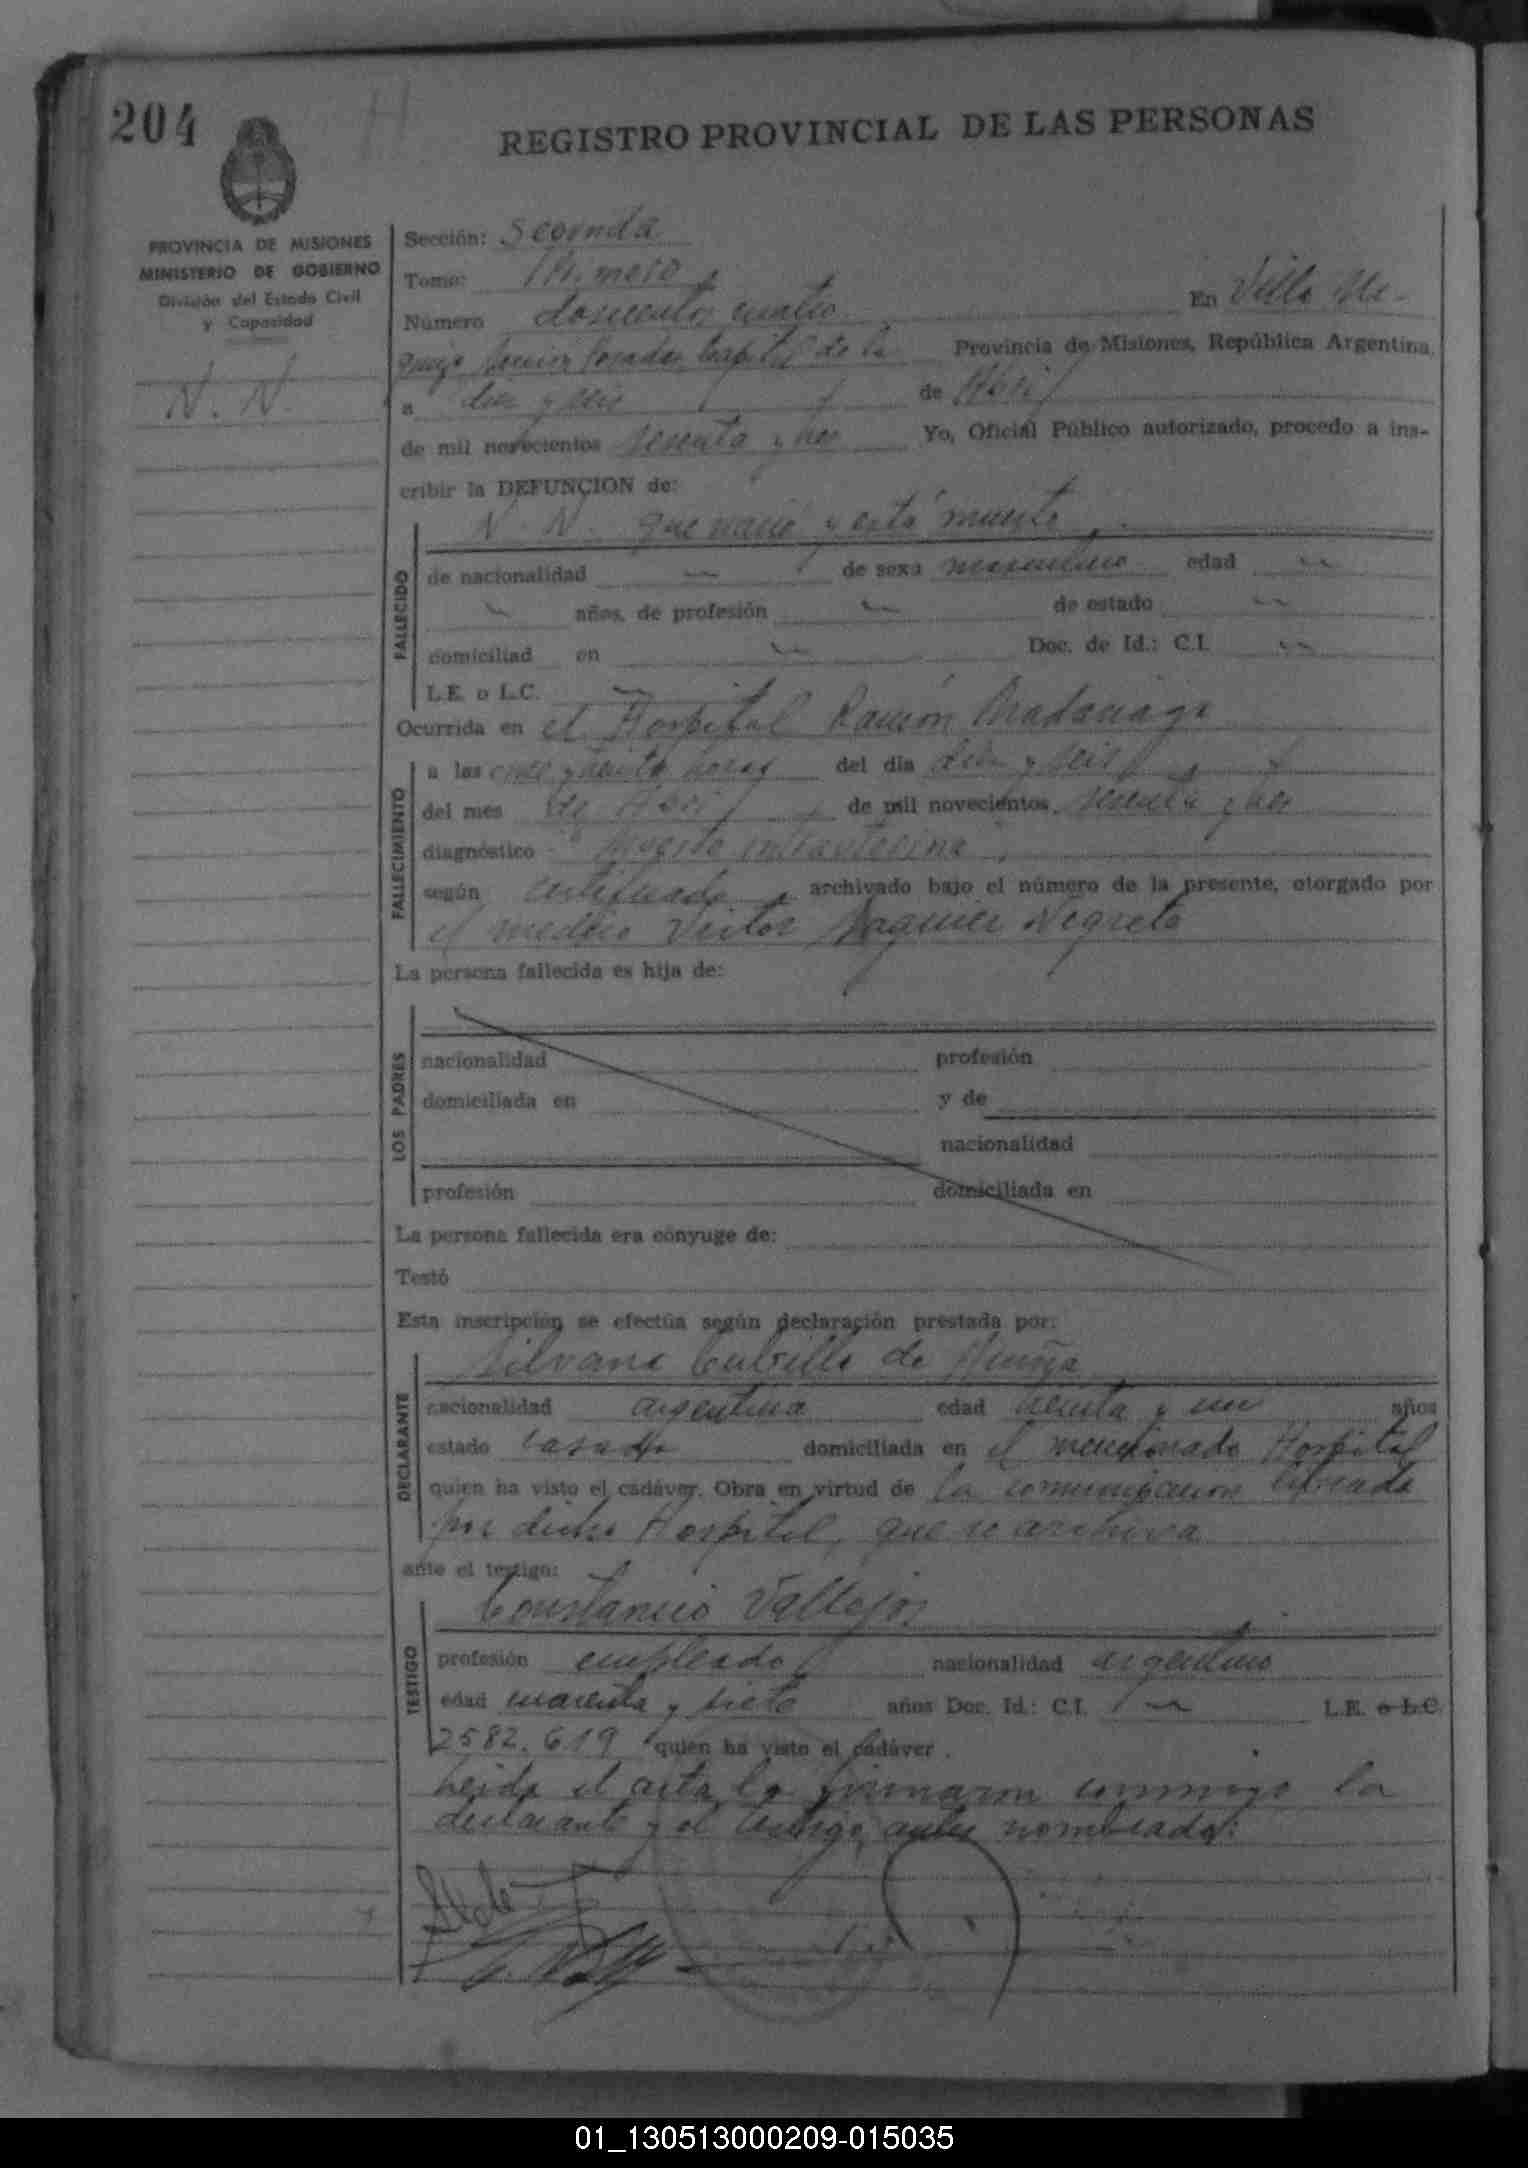 204
REGISTRO PROVINCIAL DE LAS PERSONAS
PROVINCIA DE MISIONES
MINISTERIO DE GOBIERNO
División del Estado Civil
y Capacidad
N. N.
Sección: Segunda
Tomo: Primero
Número doscientos cuatro En Villa Ur-
quiza Posadas Capital de la Provincia de Misiones, República Argentina,
a diez y seis de Abril
de mil novecientos sesenta y tres Yo, Oficial Público autorizado, procedo a ins-
cribir la DEFUNCION de:
N. N. que nació y está muerto
FALLECIDO
de nacionalidad — de sexo masculino edad —
— años, de profesión — de estado —
domiciliad en — Doc. de Id.: C.I. —
L.E. o L.C. —
Ocurrida en el Hospital Ramón Madariaga
FALLECIMIENTO
a las once y treinta horas del día diez y seis
del mes de Abril de mil novecientos sesenta y tres
diagnóstico "Muerte intrauterina"
según certificado archivado bajo el número de la presente, otorgado por
el médico Victor Negrete
La persona fallecida es hija de:
LOS PADRES
nacionalidad profesión
domiciliada en y de
nacionalidad
profesión domiciliada en
La persona fallecida era cónyuge de:
Testó
Esta inscripción se efectúa según declaración prestada por:
DECLARANTE
Silvana de
nacionalidad argentina edad treinta y un años
estado casada domiciliada en el mencionado Hospital
quien ha visto el cadáver. Obra en virtud de la comunicación librada
por dicho Hospital, que se archiva
ante el testigo:
TESTIGO
Constancio Vallejos
profesión empleado nacionalidad argentino
edad cuarenta y siete años Doc. Id.: C.I. — L.E. o L.C.
2582.619 quien ha visto el cadáver.
Leida el acta la firmaron conmigo la
declarante y el testigo antes nombrados:
01_130513000209-015035